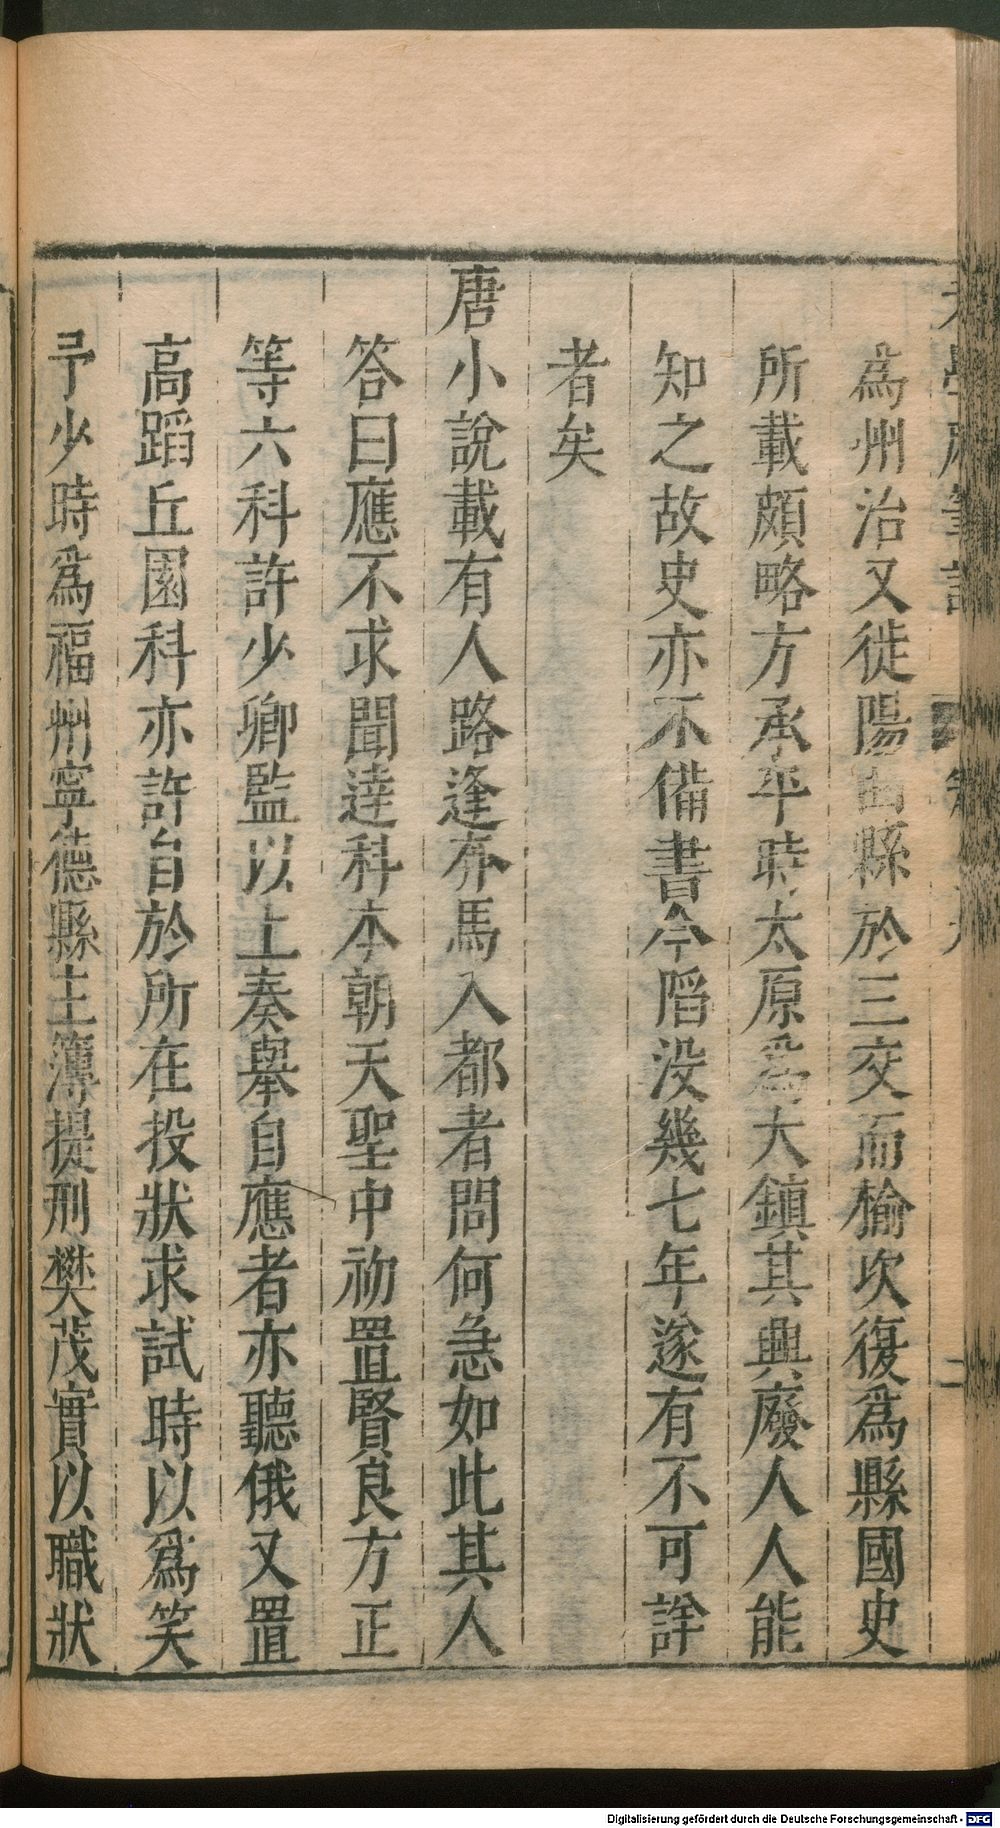 爲州治又徙陽曲縣於三交而榆次復爲縣國史
所載頗略方承平時太原爲大鎮其興廢人人能
知之故史亦不備書今陷没幾七年遂有不可詳
者矣
唐小說載有人路逢奔馬入都者問何急如此其人
答曰應不求聞達科本朝天聖中初置賢良方正
等六科許少卿監以上奏舉自應者亦聽俄又置
高蹈丘園科亦許自於所在投狀求試時以爲笑
予少時爲福州寧德縣主簿提刑樊茂實以職狀
Digitalisierung gefördert durch die Deutsche Forschungsgemeinschaft - DFG